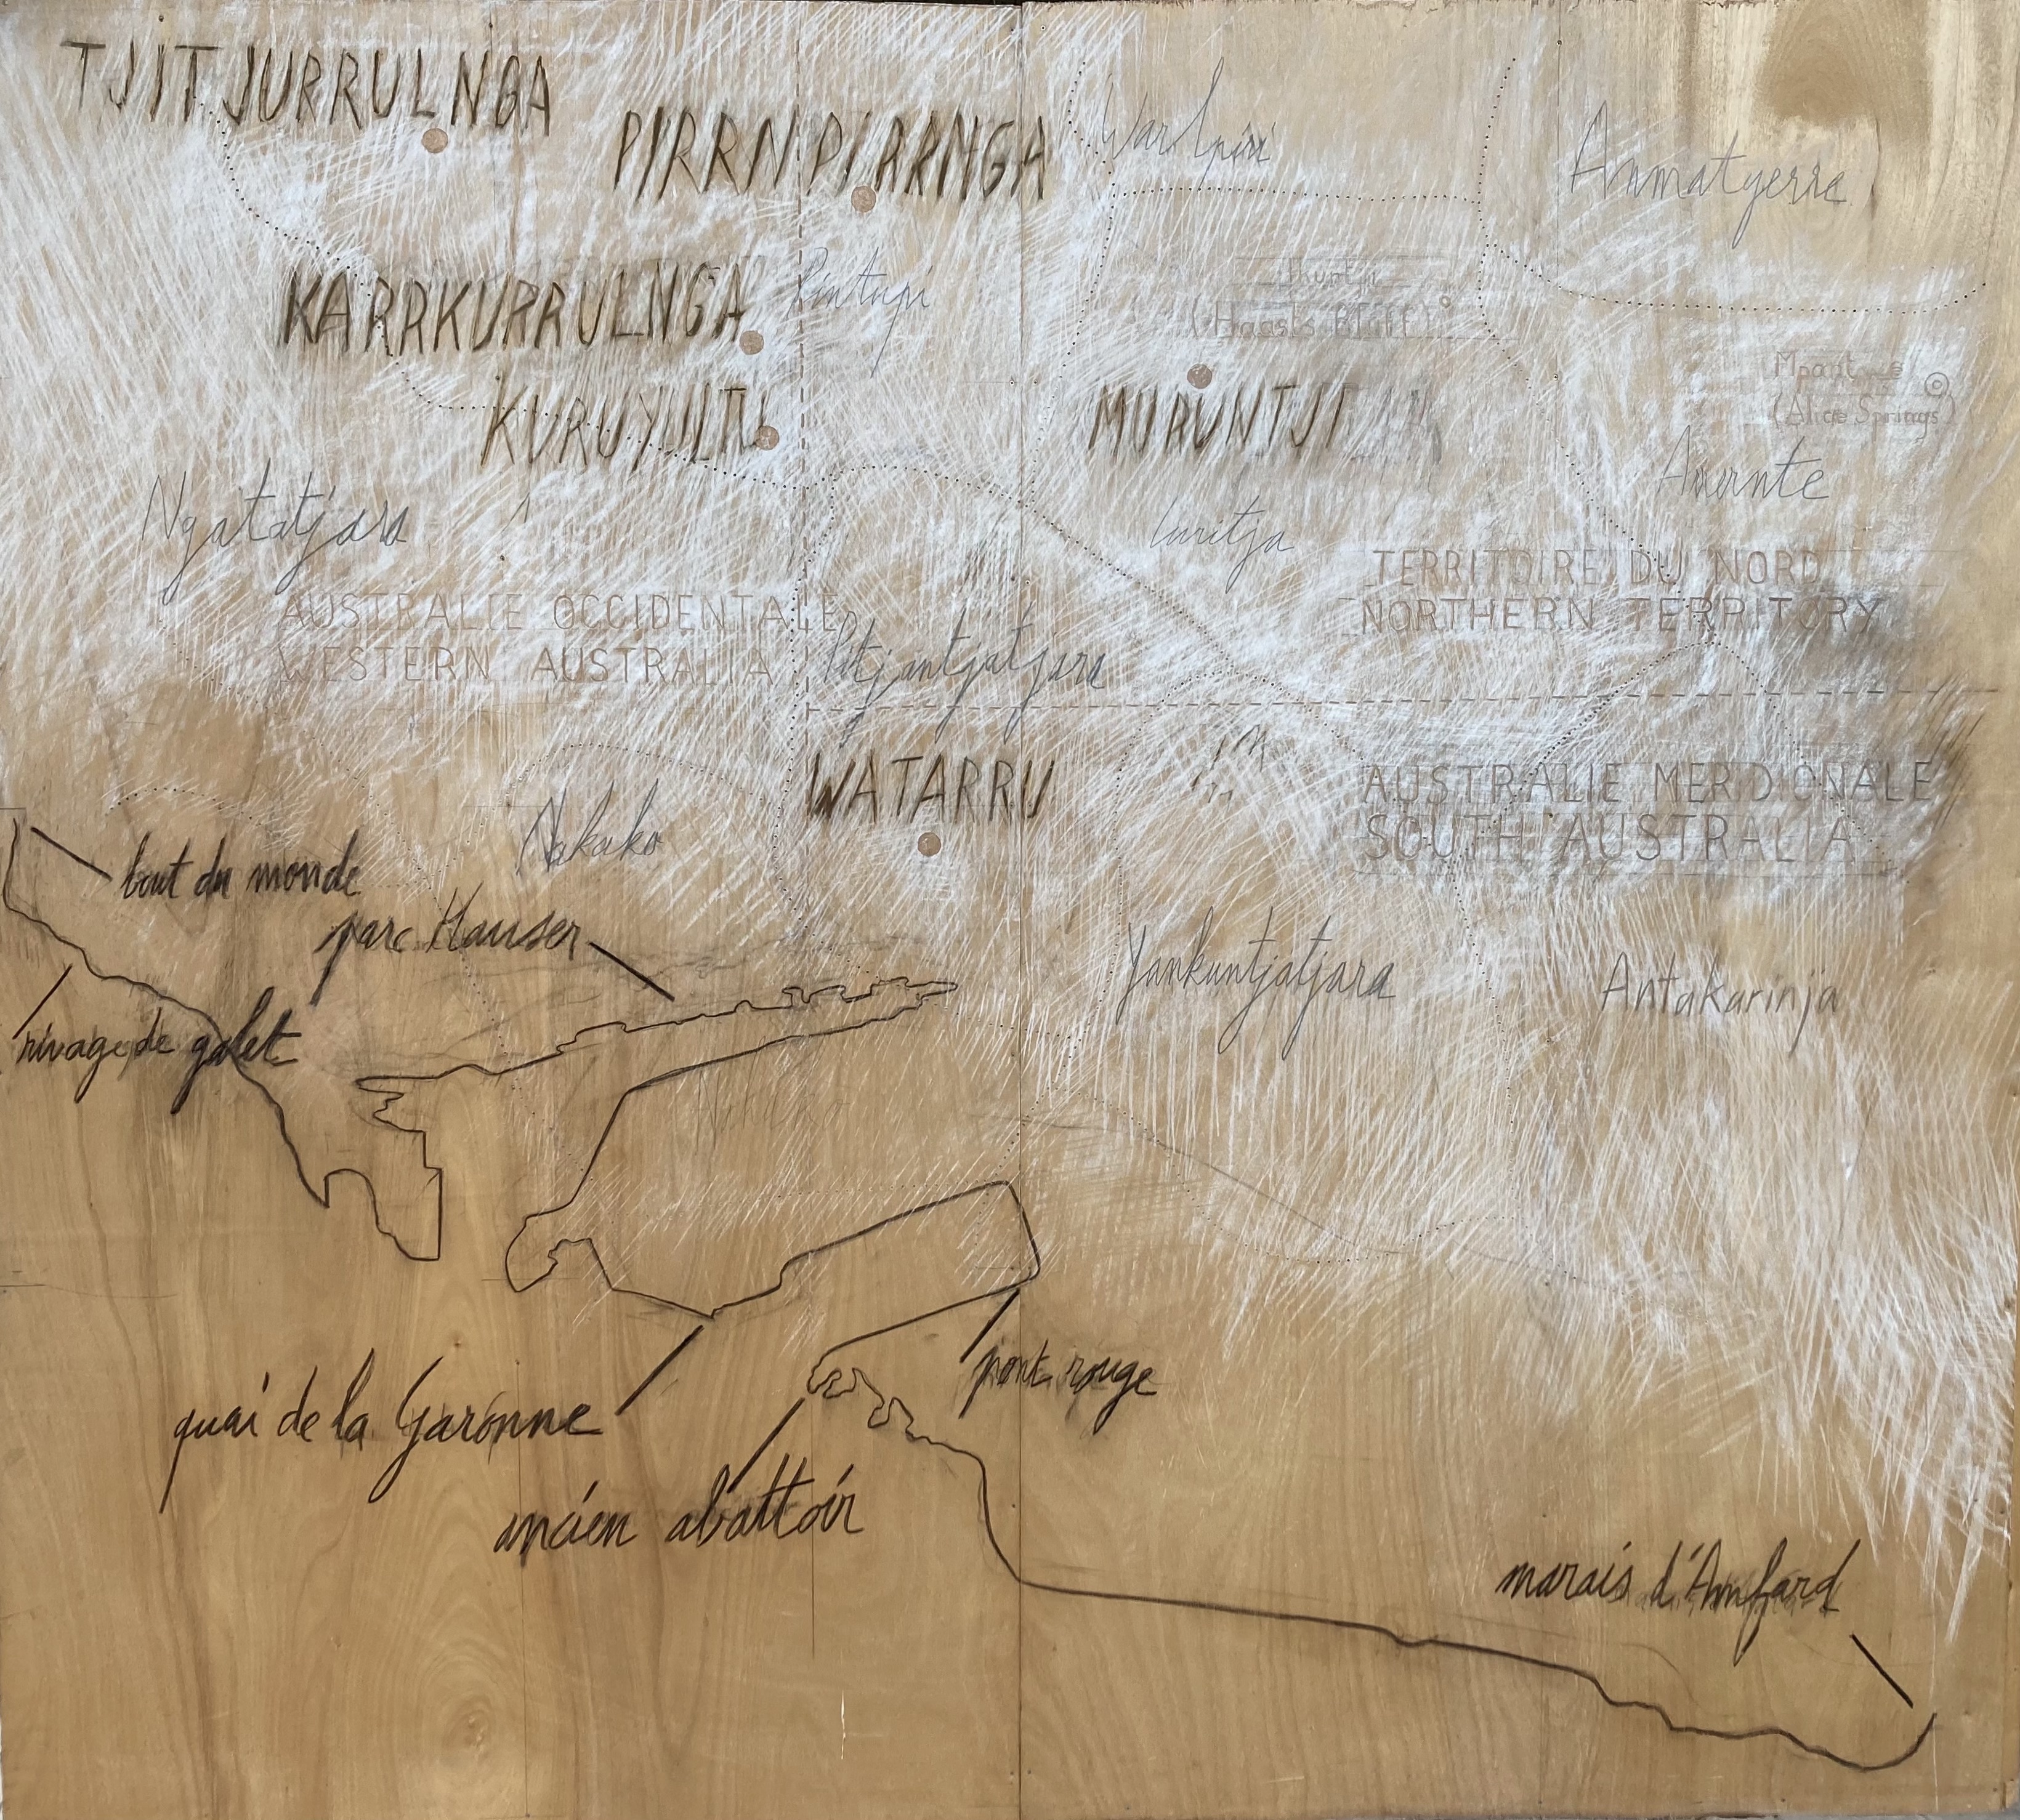 TJITJURRULNGA
PIRRNPIRRNGA
Warlpiri
Anmatyerre
KARRKURRULNGA
Pintupi
(Haasts Bluff)
KURUYULTU
MURUNTJI
(Alice Springs)
Ngatatjara
Luritja
Arrernte
AUSTRALIE OCCIDENTALE
WESTERN AUSTRALIA
TERRITOIRE DU NORD
NORTHERN TERRITORY
Pitjantjatjara
WATARRU
AUSTRALIE MERIDIONALE
SOUTH AUSTRALIA
Nakako
bout du monde
parc Hauser
Yankuntjatjara
Antakarinja
rivage de galet
quai de la Garonne
pont rouge
ancien abattoir
marais d'Amfard